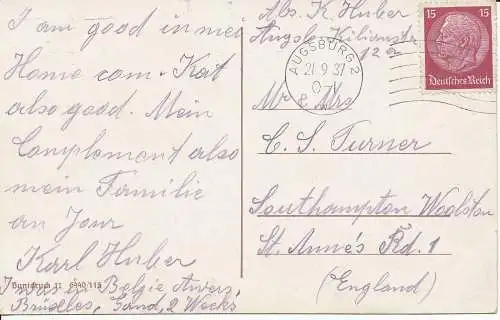 I am good in mei
Home com. Kat
also good. Mein
Complement also
mein Familie
an Jour
Karl Huber
I was in Belgie Anvers,
Brüxelles, Gand, 2 Weeks
Abs. K. Huber
Augsbg. Kilianstr
12
AUGSBURG 2
21.9.37
15 15
Deutsches Reich
Mr & Mrs
C. S. Turner
Southampton Woolston
St. Anné's Rd. 1
(England)